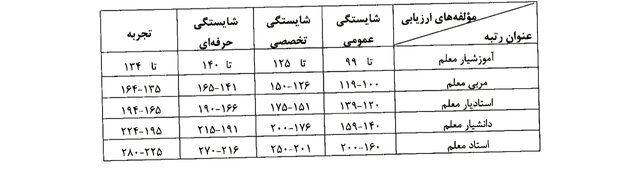 مؤلفه‌های ارزیابی
عنوان رتبه
شایستگی عمومی
شایستگی تخصصی
شایستگی حرفه‌ای
تجربه
آموزشیار معلم تا ۹۹ تا ۱۲۵ تا ۱۴۰ تا ۱۳۴
مربی معلم ۱۰۰-۱۱۹ ۱۲۶-۱۵۰ ۱۴۱-۱۶۵ ۱۳۵-۱۶۴
استادیار معلم ۱۲۰-۱۳۹ ۱۵۱-۱۷۵ ۱۶۶-۱۹۰ ۱۶۵-۱۹۴
دانشیار معلم ۱۴۰-۱۵۹ ۱۷۶-۲۰۰ ۱۹۱-۲۱۵ ۱۹۵-۲۲۴
استاد معلم ۱۶۰-۲۰۰ ۲۰۱-۲۵۰ ۲۱۶-۲۷۰ ۲۲۵-۲۸۰